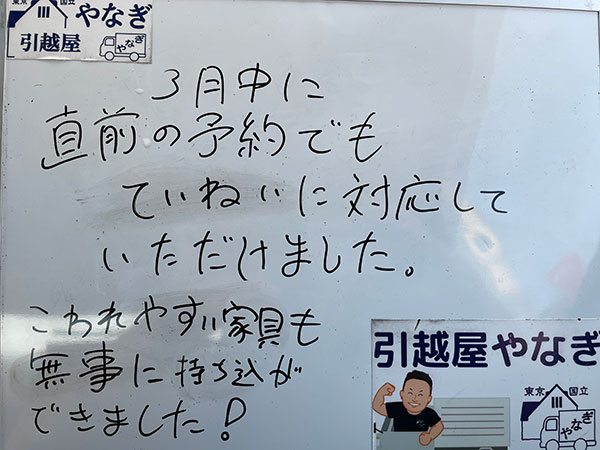 東京 国立
やなぎ
引越屋
やなぎ
3月中に
直前の予約でも
ていねいに対応して
いただけました。
こわれやすい家具も
無事に持ち込みが
できました!
引越屋やなぎ
東京 国立
やなぎ